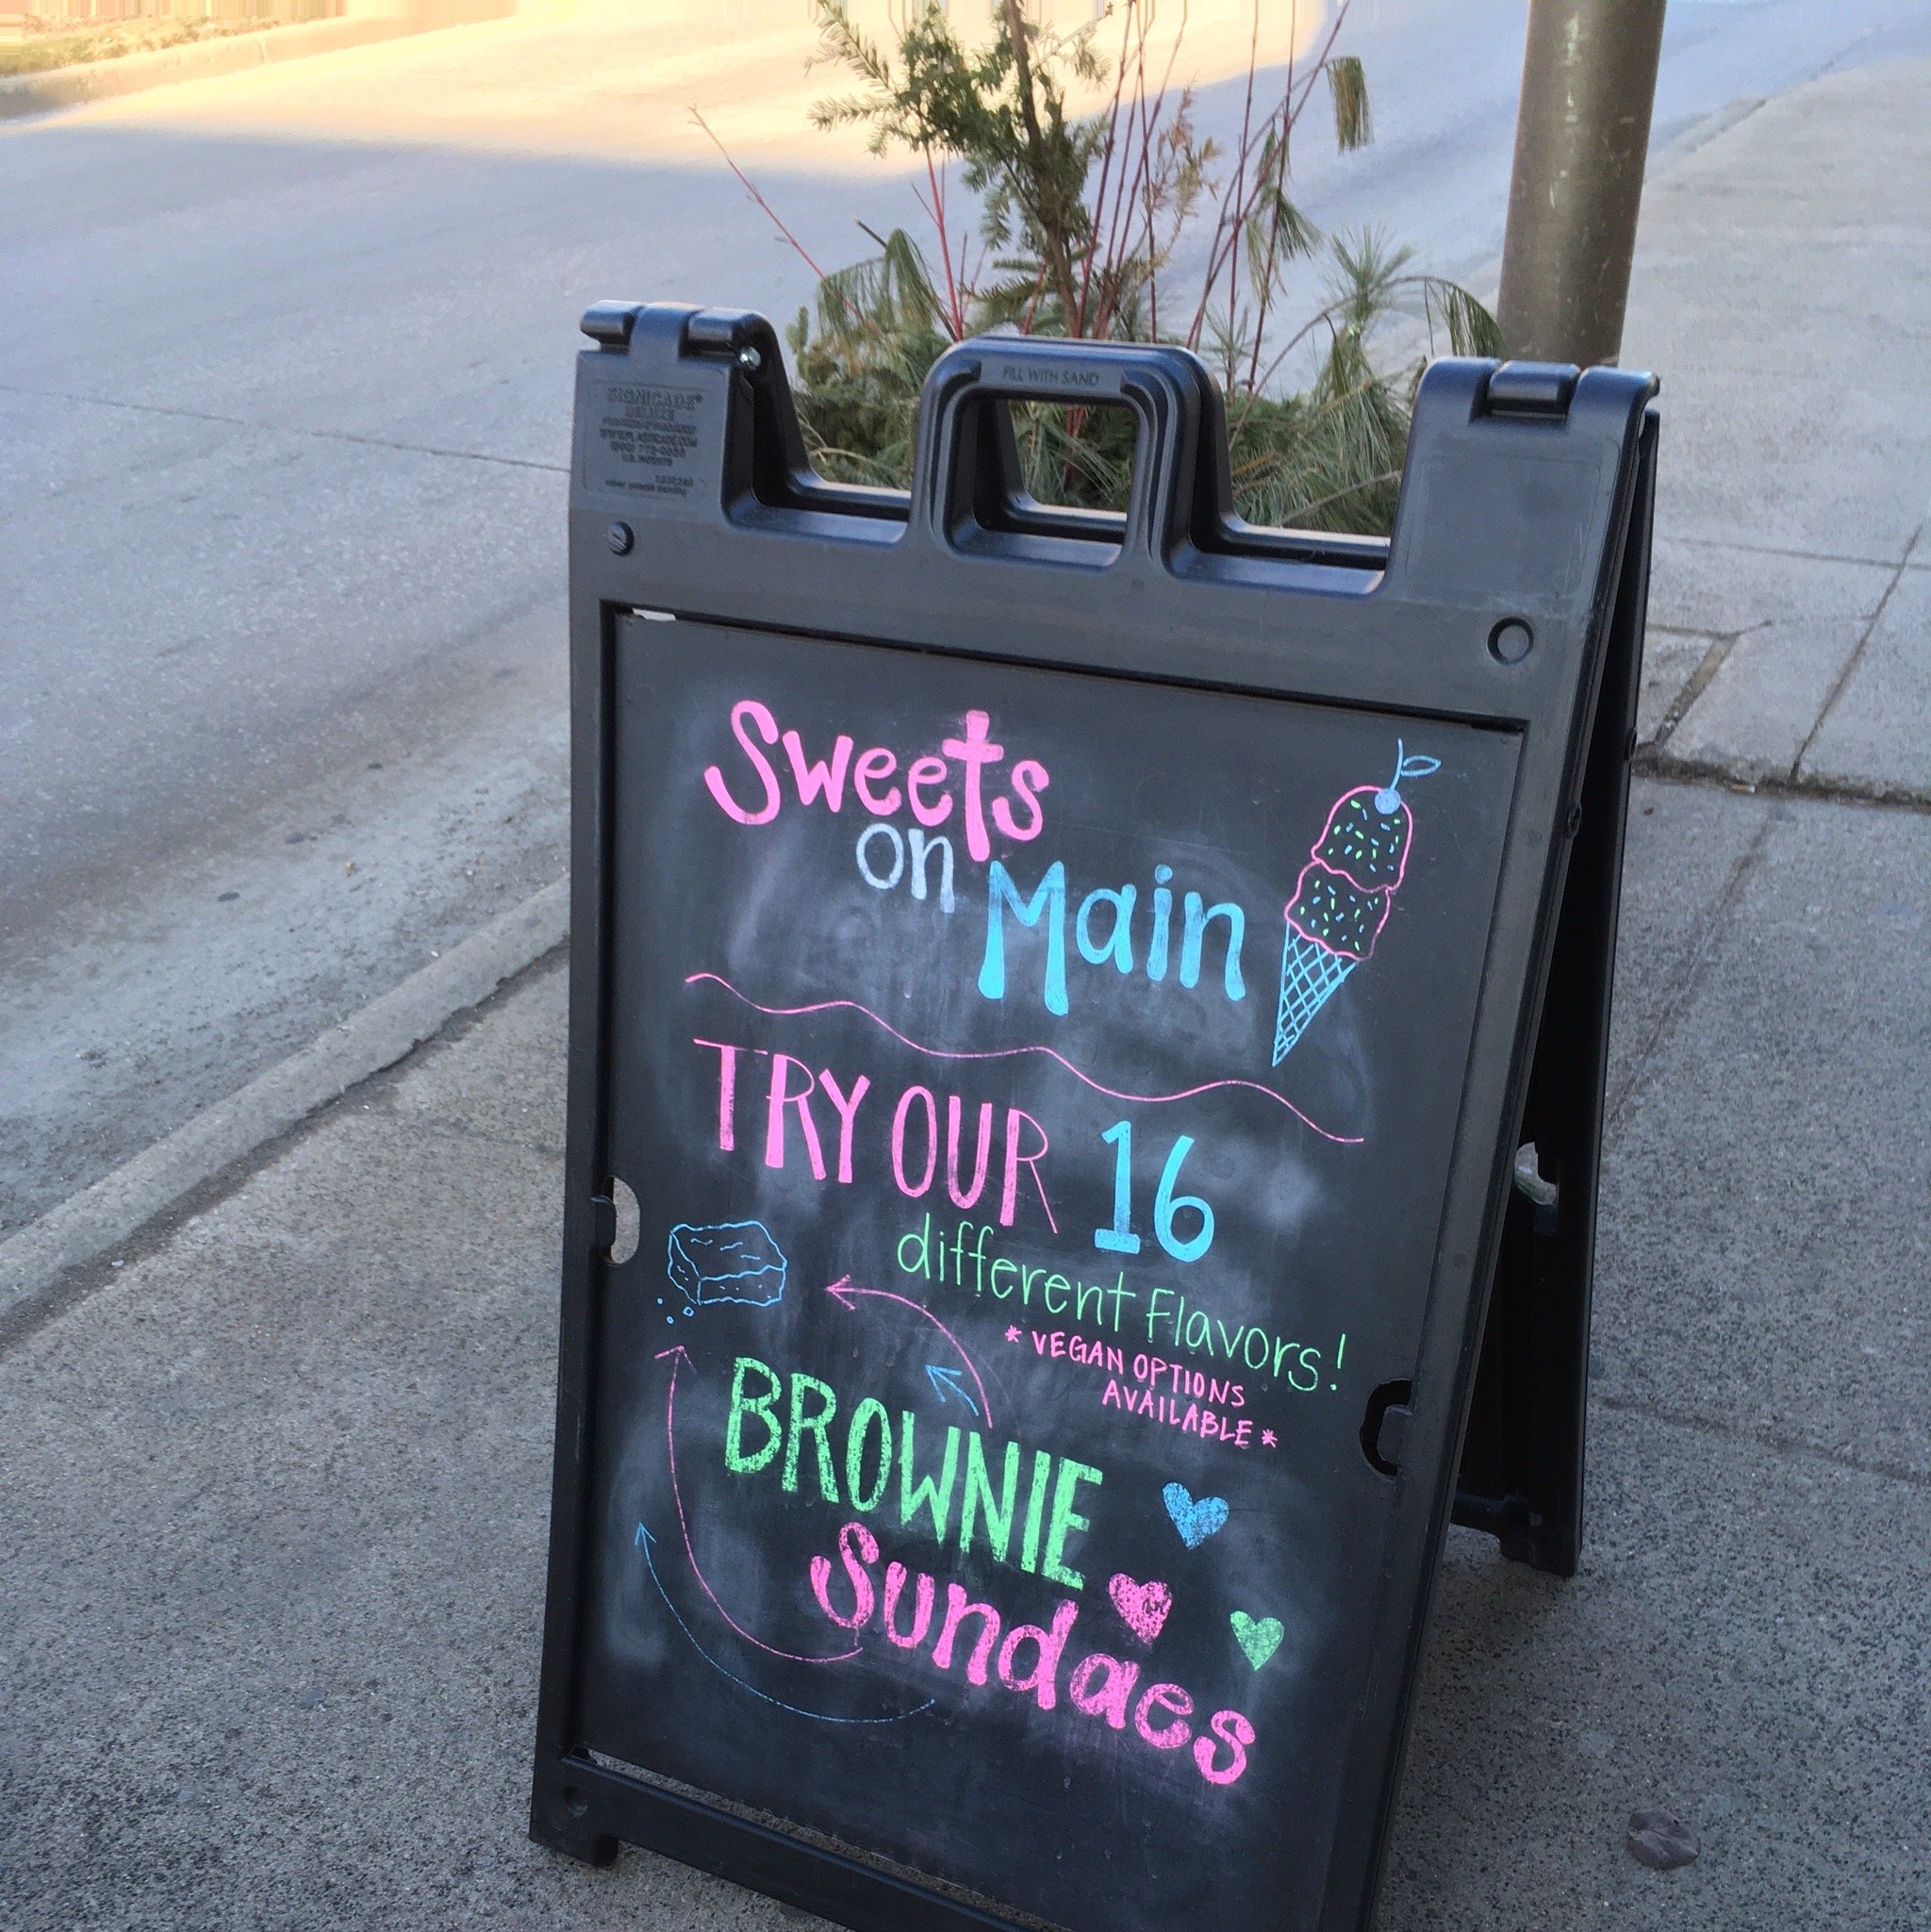 FILL WITH SAND
SIGNICADE®
DELUXE
WWW.PLASTICADE.COM
Sweets
on
Main
TRY OUR 16
different Flavors!
* VEGAN OPTIONS
AVAILABLE *
BROWNIE
Sundaes